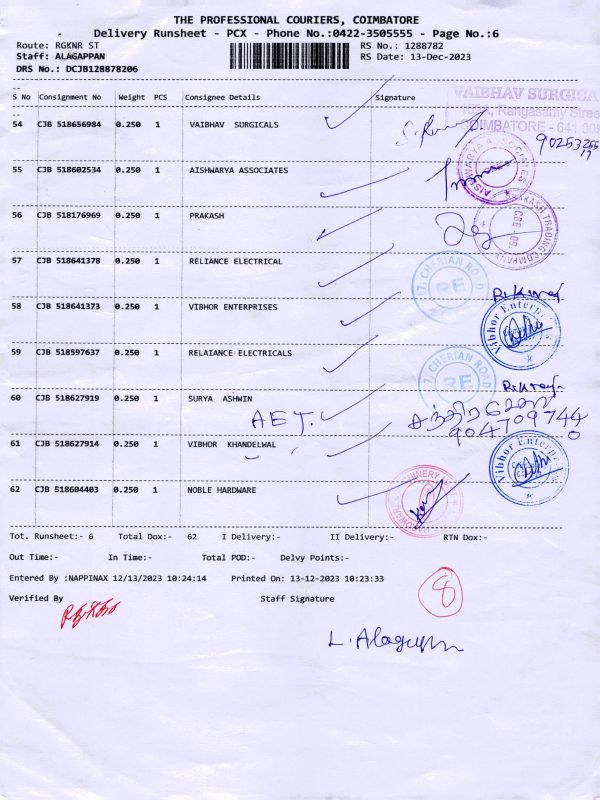 THE PROFESSIONAL COURIERS, COIMBATORE
Delivery Runsheet - PCX - Phone No.:0422-3505555 - Page No.:6
Route: RGKNR ST
RS No.: 1288782
Staff: ALAGAPPAN
RS Date: 13-Dec-2023
DRS No.: DCJB128878206
S No Consignment No Weight PCS Consignee Details Signature
VAIBHAV SURGICA
Rangasamy Stree
54 CJB 518656984 0.250 1 VAIBHAV SURGICALS
COIMBATORE - 641 00
90253
55 CJB 518602534 0.250 1 AISHWARYA ASSOCIATES
AISHWARYA ASSOCIATES
56 CJB 518176969 0.250 1 PRAKASH
PRAKASH TRADING COMPANY
CBE - 09.
57 CJB 518641378 0.250 1 RELIANCE ELECTRICAL
7, CHERIAN ROAD
RE
58 CJB 518641373 0.250 1 VIBHOR ENTERPRISES
Vibhor Enterpr
59 CJB 518597637 0.250 1 RELAIANCE ELECTRICALS
7, CHERIAN ROAD
RE
60 CJB 518627919 0.250 1 SURYA ASHWIN
AET.
9047097440
61 CJB 518627914 0.250 1 VIBHOR KHANDELWAL
Vibhor Enterpr
62 CJB 518604403 0.250 1 NOBLE HARDWARE
Tot. Runsheet:- 6 Total Dox:- 62 I Delivery:- II Delivery:- RTN Dox:-
Out Time:- In Time:- Total POD:- Delvy Points:-
Entered By :NAPPINAX 12/13/2023 10:24:14 Printed On: 13-12-2023 10:23:33
8
Verified By Staff Signature